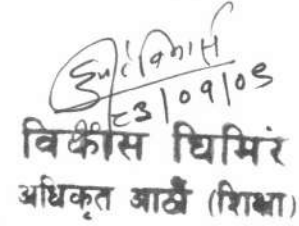 ८३/०१/०९
विकास घिमिरे
अधिकृत आठौं (शिक्षा)